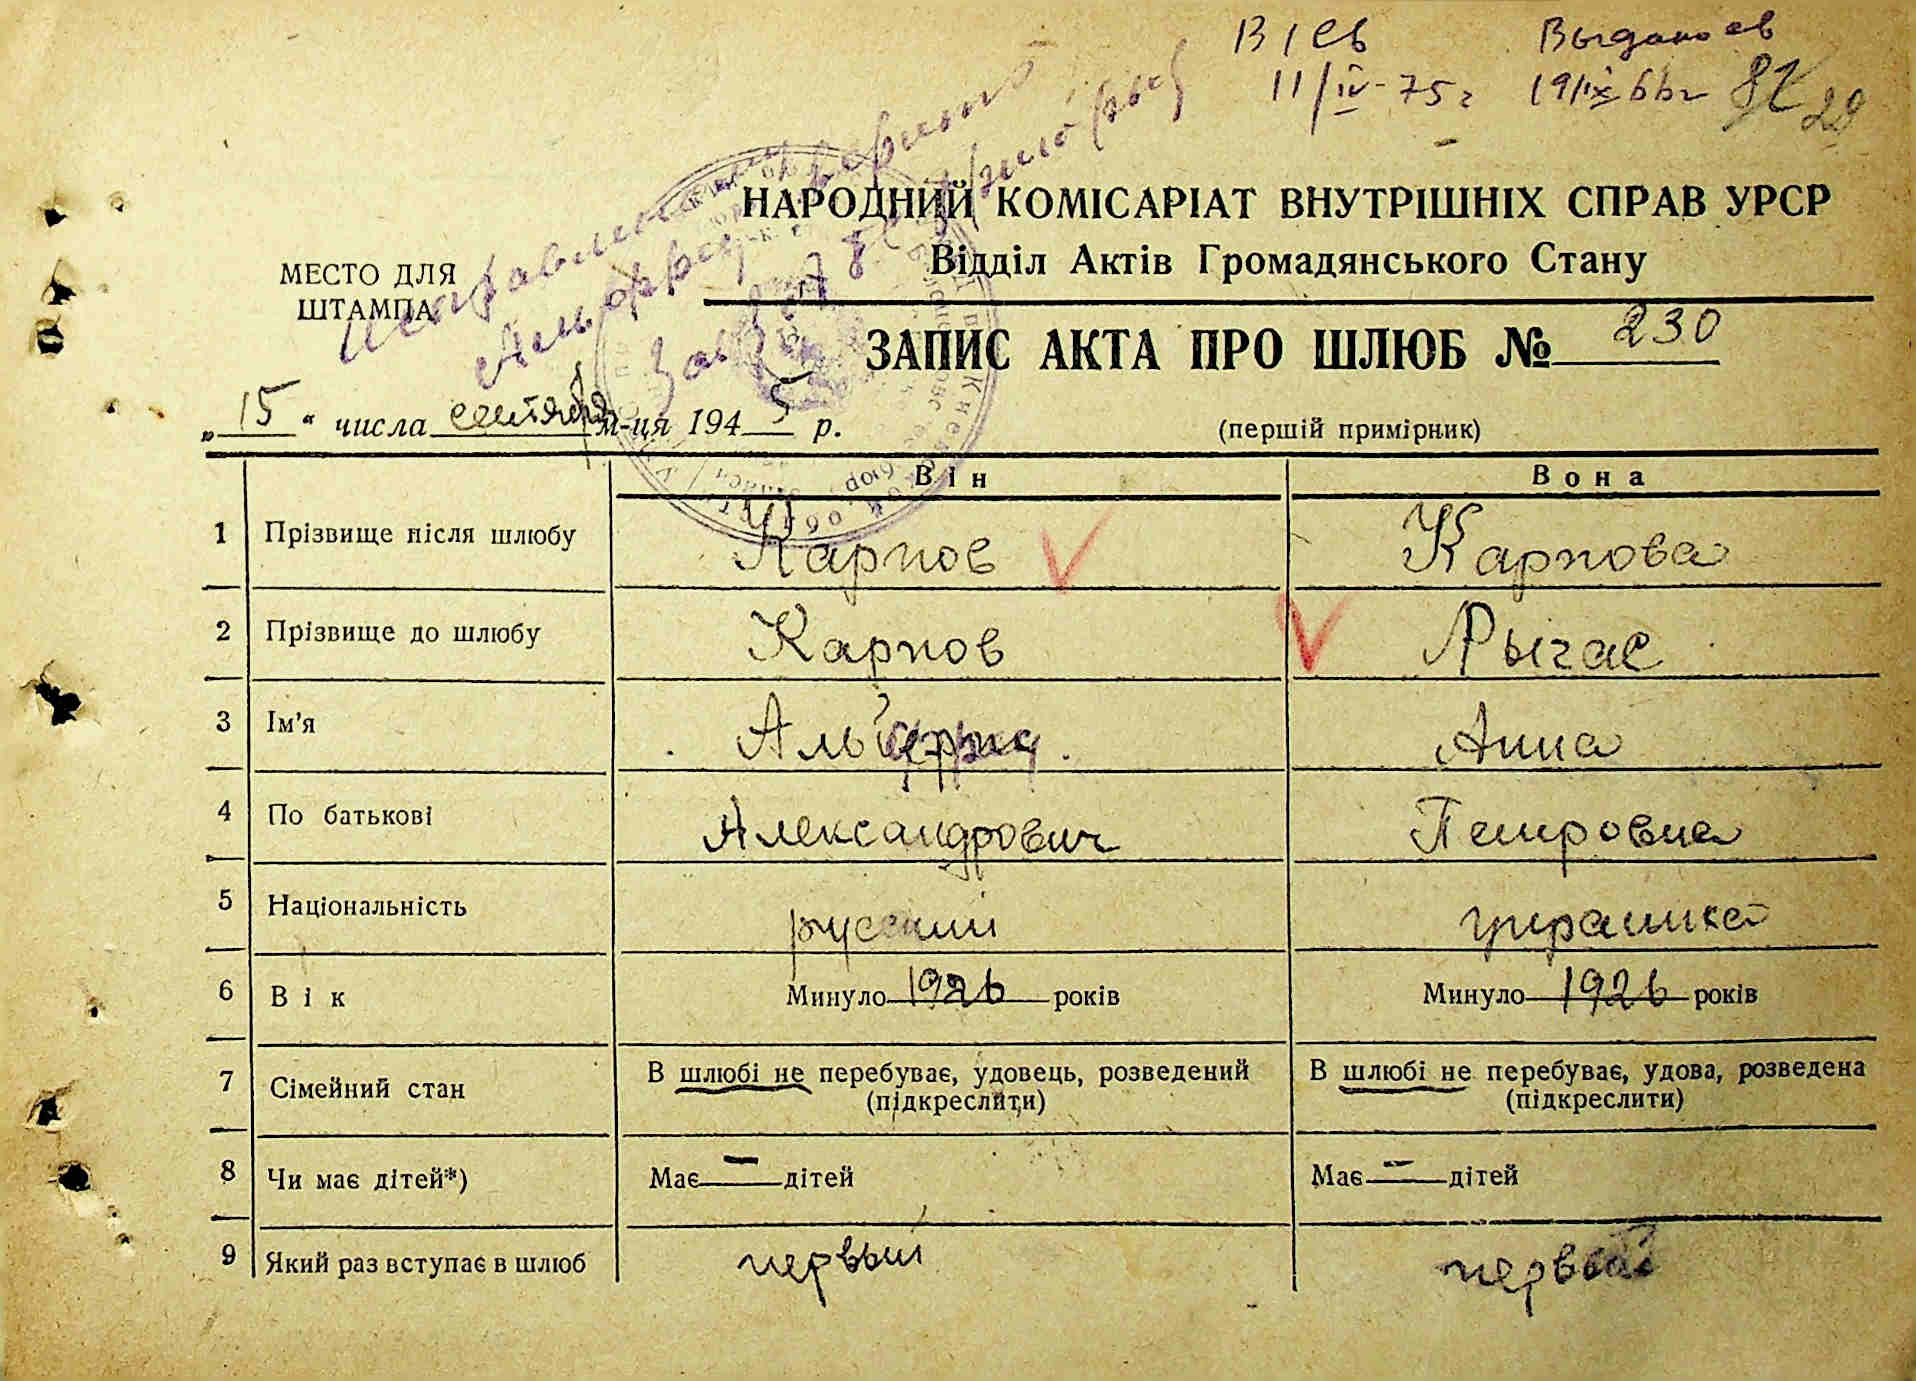 Выдано св
11/IV-75г 19/IX 66г 82 29
НАРОДНИЙ КОМІСАРІАТ ВНУТРІШНІХ СПРАВ УРСР
Відділ Актів Громадянського Стану
МЕСТО ДЛЯ
ШТАМПА
ЗАПИС АКТА ПРО ШЛЮБ № 230
„15“ числа сентября м-ця 1945 р.
(перший примірник)
Він Вона
1 Прізвище після шлюбу Карпов Карпова
2 Прізвище до шлюбу Карпов Рычас
3 Ім’я Альфред Анна
4 По батькові Александрович Петровна
5 Національність русский украинка
6 Вік Минуло 1926 років Минуло 1926 років
7 Сімейний стан В шлюбі не перебуває, удовець, розведений (підкреслити) В шлюбі не перебуває, удова, розведена (підкреслити)
8 Чи має дітей*) Має — дітей Має — дітей
9 Який раз вступає в шлюб первый первый